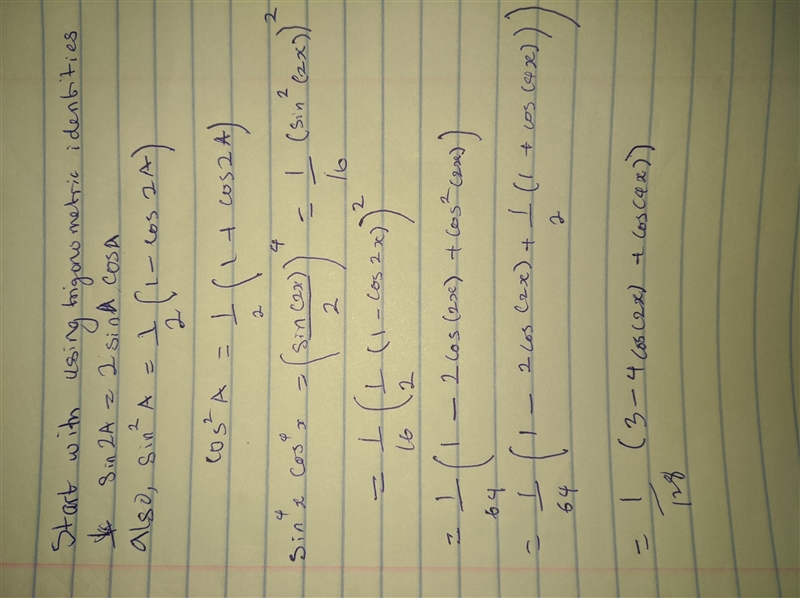 Start with using trigonometric identities
sin2A = 2 sinA cosA
also, sin²A = 1/2 (1 - cos 2A)
cos²A = 1/2 (1 + cos2A)
sin⁴x cos⁴x = (sin(2x)/2)⁴ = 1/16 (sin²(2x))²
= 1/16 (1/2 (1 - cos2x))²
= 1/64 (1 - 2cos(2x) + cos²(2x))
= 1/64 (1 - 2cos(2x) + 1/2 (1 + cos(4x)))
= 1/128 (3 - 4cos(2x) + cos(4x))